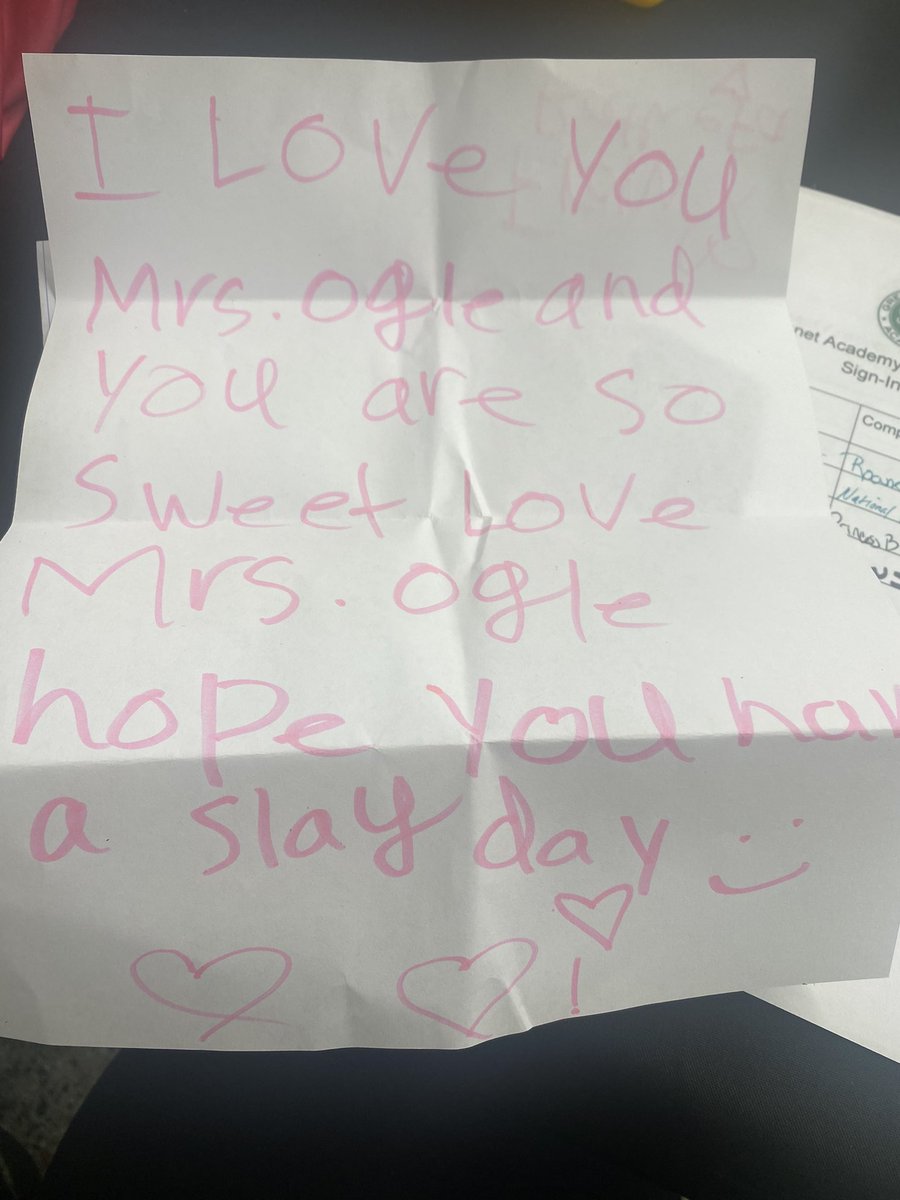 I Love You
Mrs. Ogle and
you are so
sweet Love
Mrs. Ogle
hope you hav
a slay day :)
!
net Academy
Sign-In
Comp
National